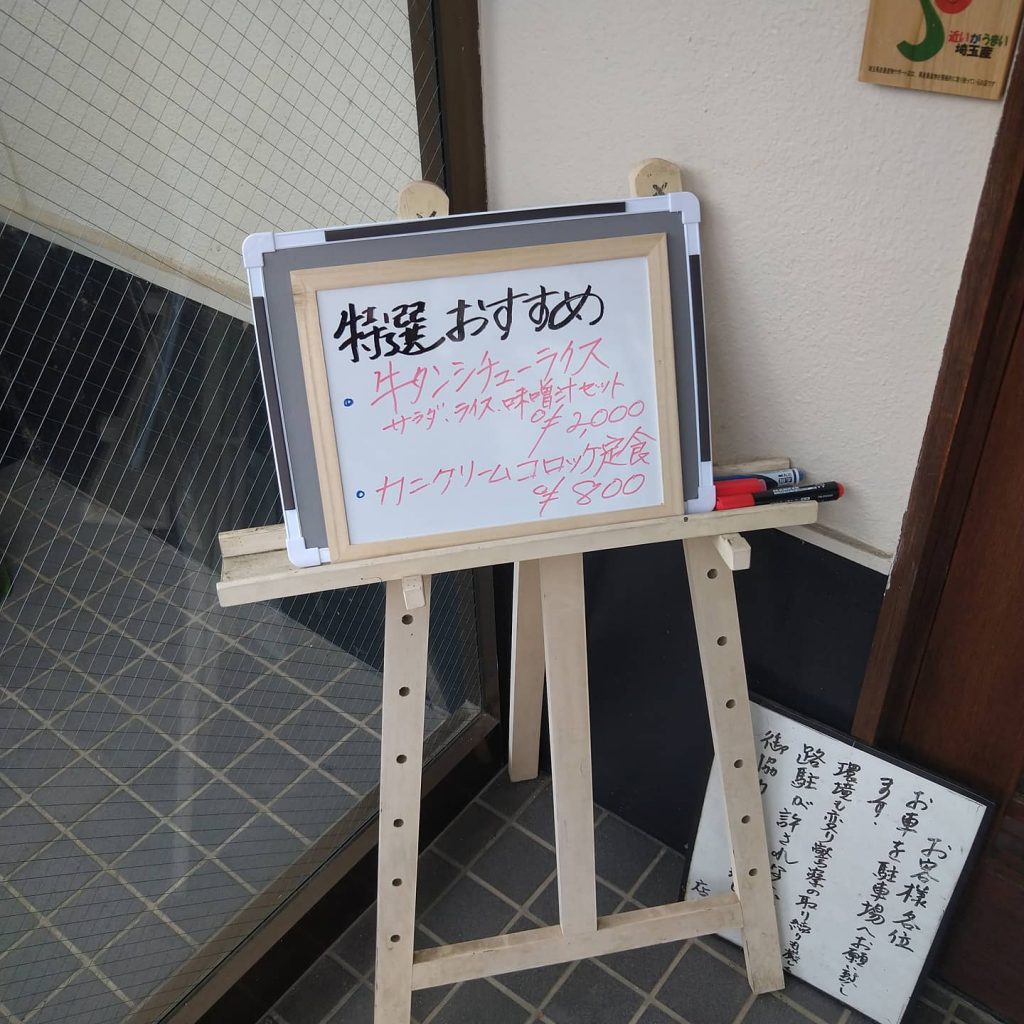 近いがうまい
埼玉産
特選おすすめ
牛タンシチューライス
サラダ、ライス、味噌汁セット
¥2,000
カニクリームコロッケ定食
¥800
お客様各位
お車を駐車場へお願い致し
ます。
環境も変り警察の取り締りも
路駐が許され
御協力